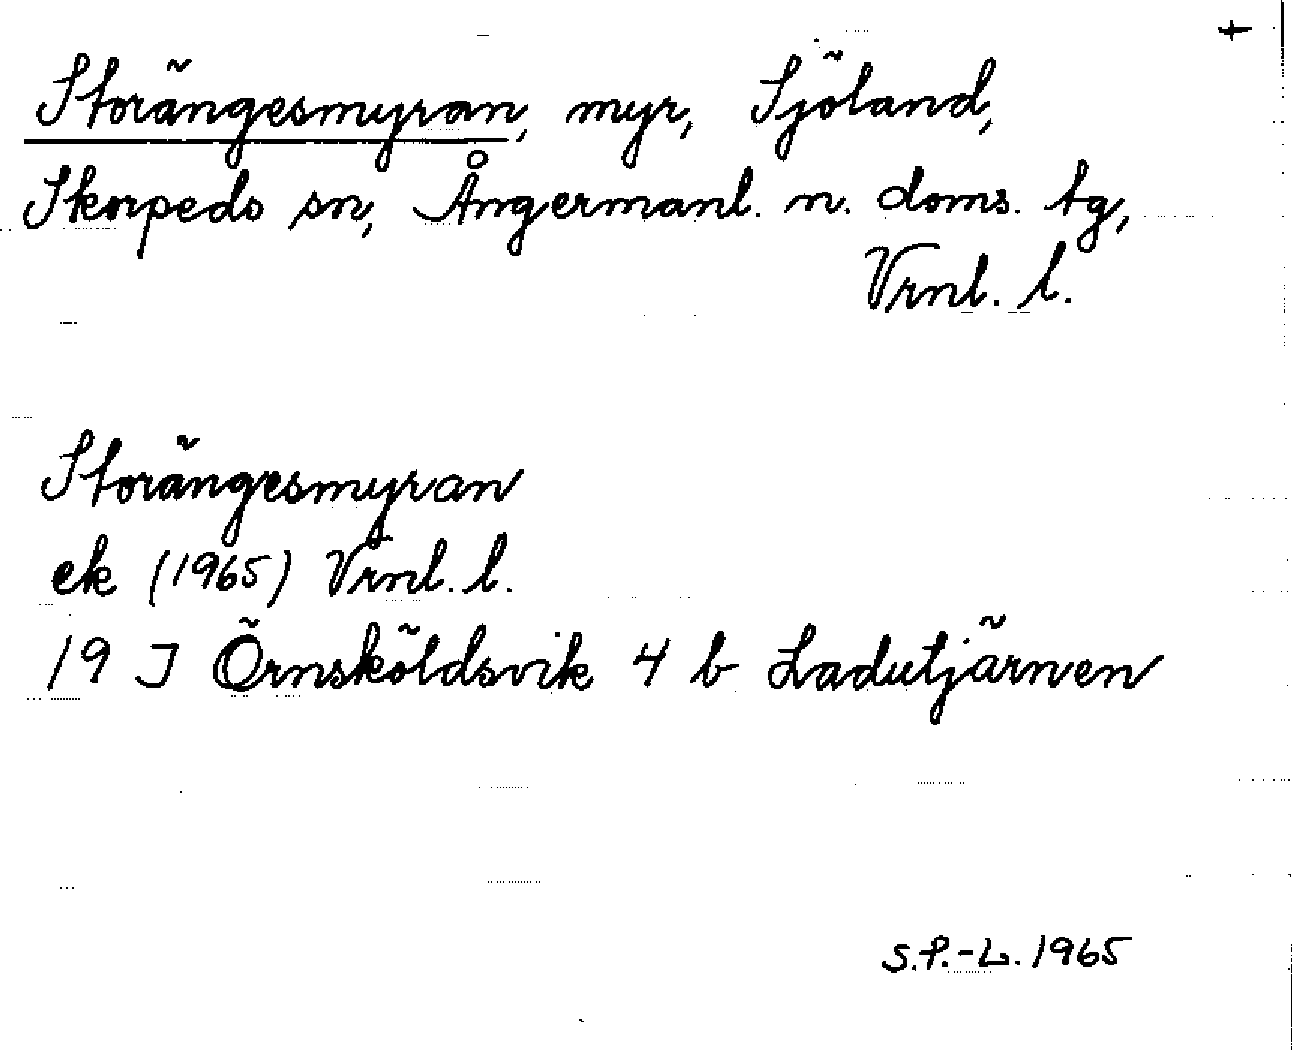 +
Storängesmyran, myr, Sjöland,
Skorpeds sn, Ångermanl. n. doms. tg,
Vrnl. l.
Storängesmyran
ek (1965) Vrnl. l.
19 J Örnsköldsvik 4 b Ladutjärnen
S.P.-L. 1965